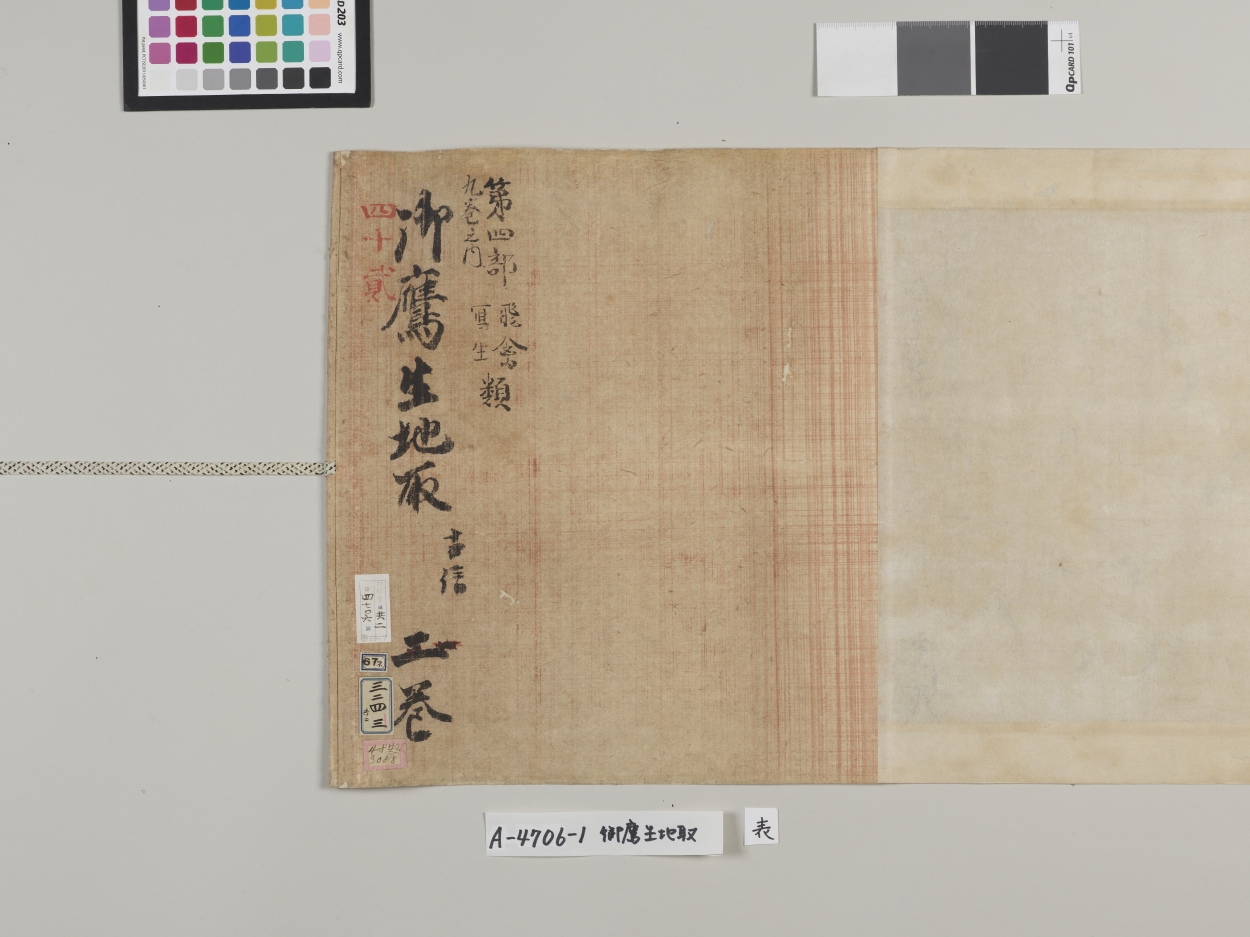 第四部 飛禽類
九巻之内 冩生
御鷹生地取
二巻
四十貳
四七〇六
共二
67
三二四三
A-4706-1 御鷹生地取
表
D203
www.qpcard.com
QPCARD 101